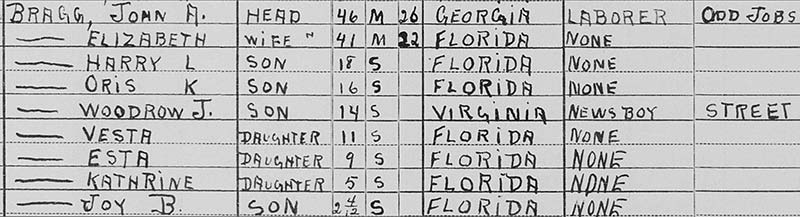 BRAGG, JOHN A. HEAD 46 M 26 GEORGIA LABORER ODD JOBS
— ELIZABETH WIFE " 41 M 22 FLORIDA NONE
— HARRY L SON 18 S FLORIDA NONE
— ORIS K SON 16 S FLORIDA NONE
— WOODROW J. SON 14 S VIRGINIA NEWSBOY STREET
— VESTA DAUGHTER 11 S FLORIDA NONE
— ESTA DAUGHTER 9 S FLORIDA NONE
— KATHRINE DAUGHTER 5 S FLORIDA NONE
— JOY B. SON 2 4/12 S FLORIDA NONE